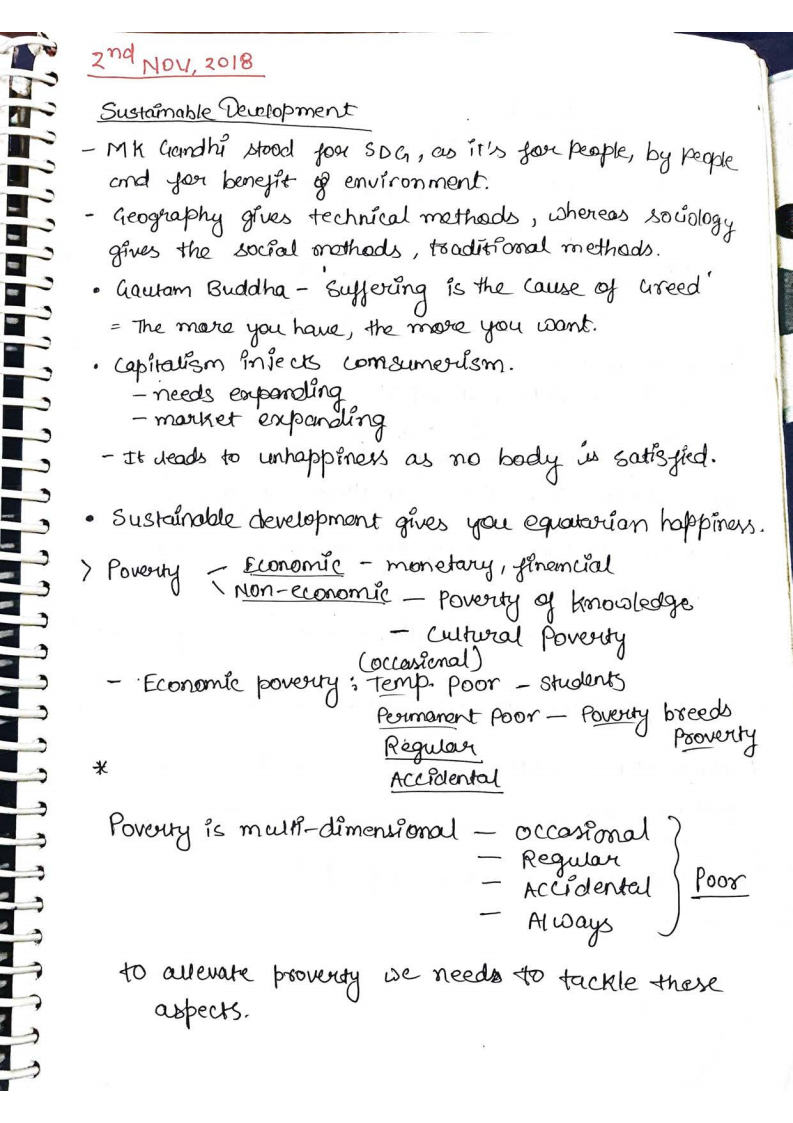 2nd NOV, 2018
Sustainable Development
- MK Gandhi stood for SDG, as it's for people, by people
and for benefit of environment.
- Geography gives technical methods, whereas sociology
gives the social mathods, traditional methods.
• Gautam Buddha - 'Suffering is the cause of Greed'
= The more you have, the more you want.
• Capitalism injects comsumerism.
- needs expanding
- market expanding
- It leads to unhappiness as no body is satisfied.
• Sustainable development gives you equatarian happiness.
> Poverty < Economic - monetary, financial
Non-economic - Poverty of knowledge
- Cultural Poverty
(occasional)
- Economic poverty : Temp. Poor - Students
Permanent Poor - Poverty breeds
Proverty
Regular
*
Accidental
Poverty is multi-dimensional - occasional
- Regular
- Accidental
Poor
- Always
to allevate proverty we needs to tackle these
aspects.